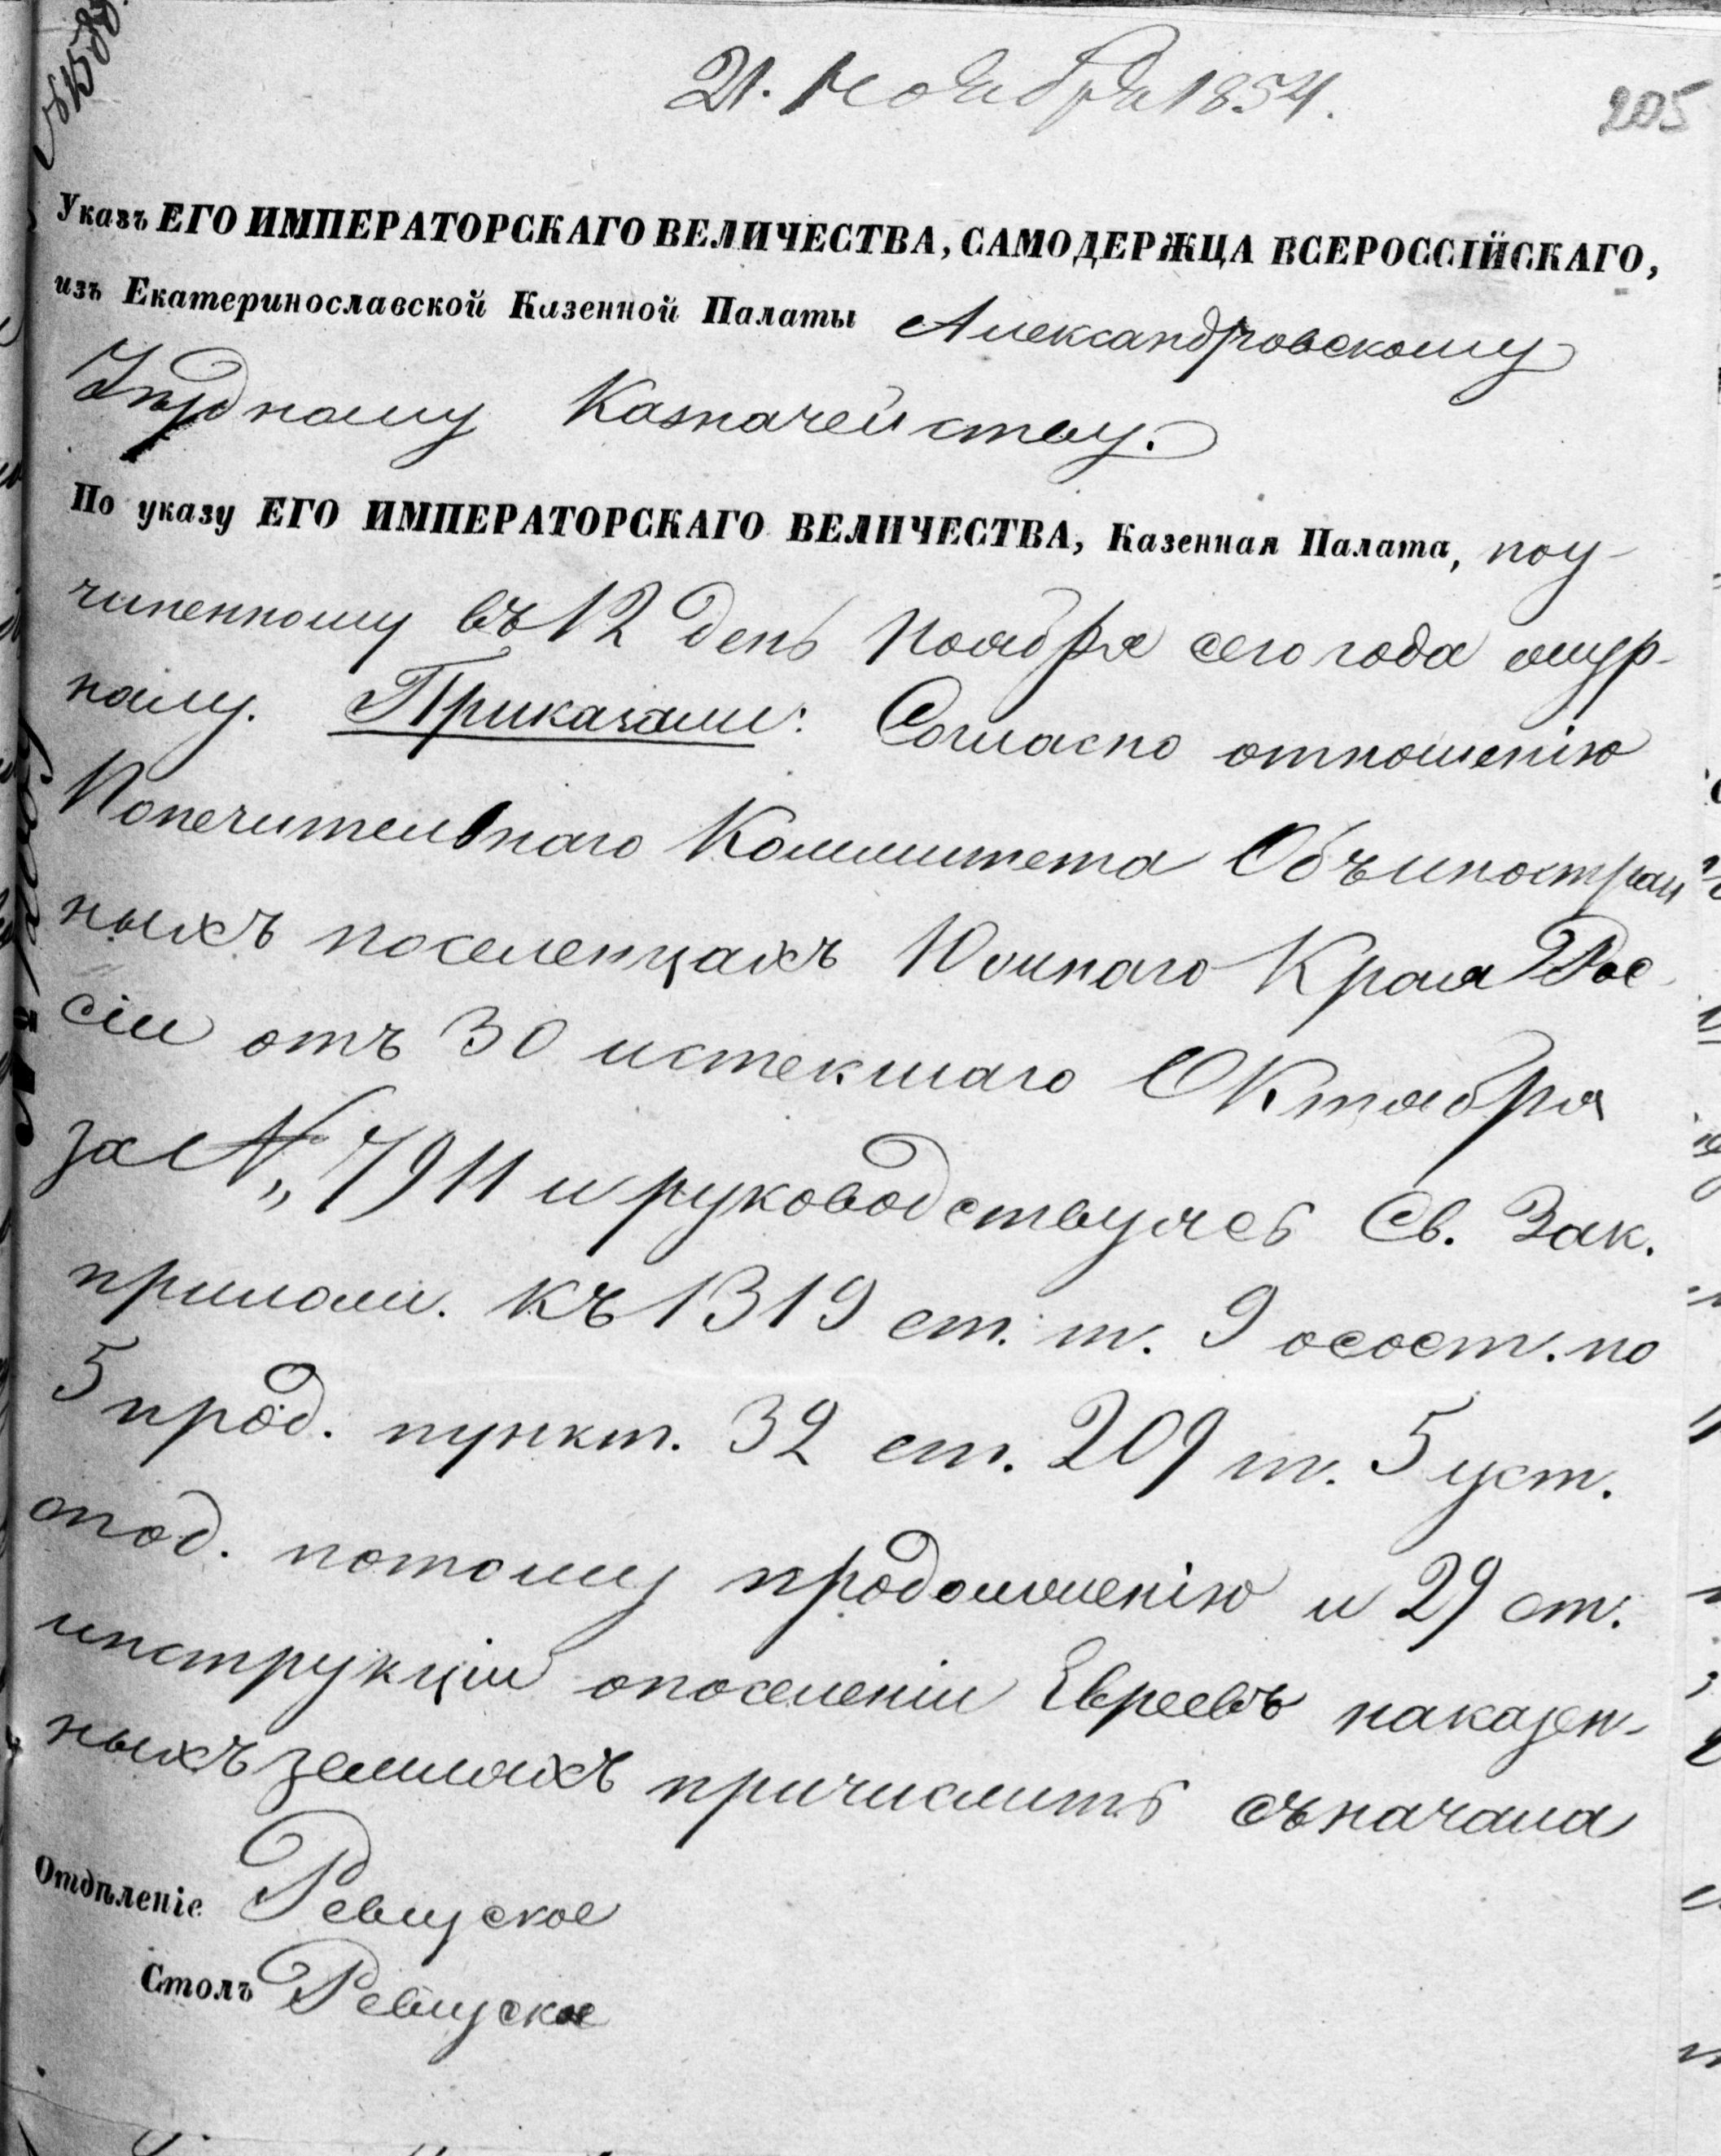 21. Ноября 1854.
205
Указъ ЕГО ИМПЕРАТОРСКАГО ВЕЛИЧЕСТВА, САМОДЕРЖЦА ВСЕРОССІЙСКАГО,
изъ Екатеринославской Казенной Палаты Александровскому
Уѣздному Казначейству.
По указу ЕГО ИМПЕРАТОРСКАГО ВЕЛИЧЕСТВА, Казенная Палата, поу-
чиненному въ 12 день Ноября сего года жур-
налу. Приказали: Согласно отношенію
Попечительнаго Коммитета Объ иностран
ныхъ поселенцахъ Южнаго Края Рос
сіи отъ 30 истекшаго Октября
за № 7911 и руководствуясь Св. Зак.
прилож. къ 1319 ст. т. 9 осост. по
5 прод. пункт. 32 ст. 209 т. 5 уст.
опод. потому продолженію и 29 ст.
инструкціи опоселеніи Евреевъ наказен-
ныхъ земляхъ причислить съ начала
Отдѣленіе Ревизское
Столъ Ревизское